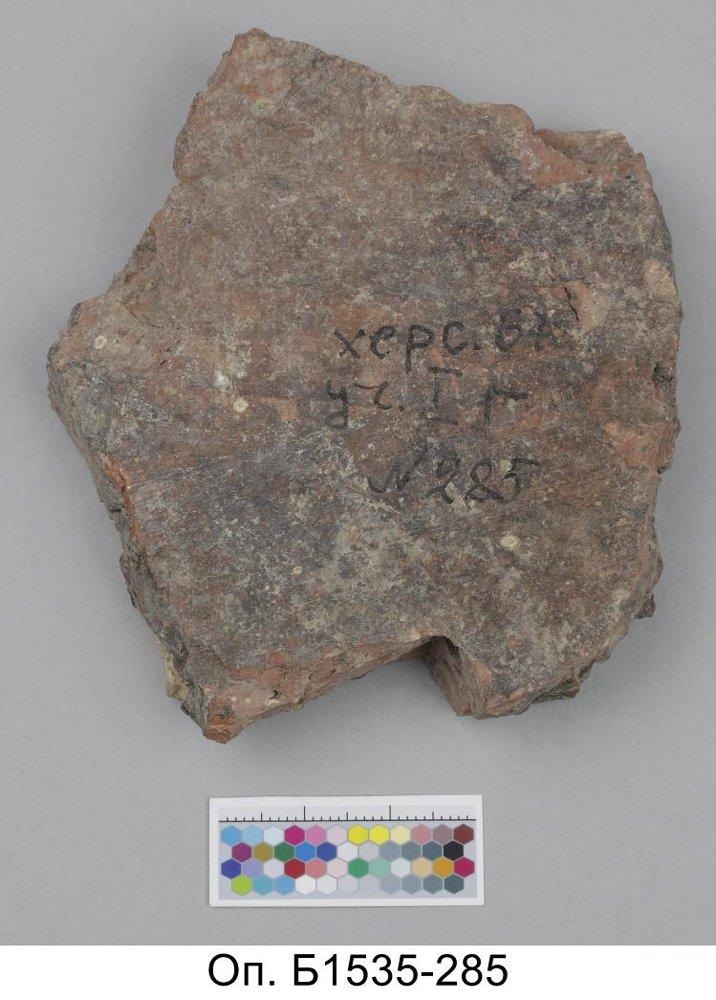 херс.
уч. I
№ 285
Оп. Б1535-285